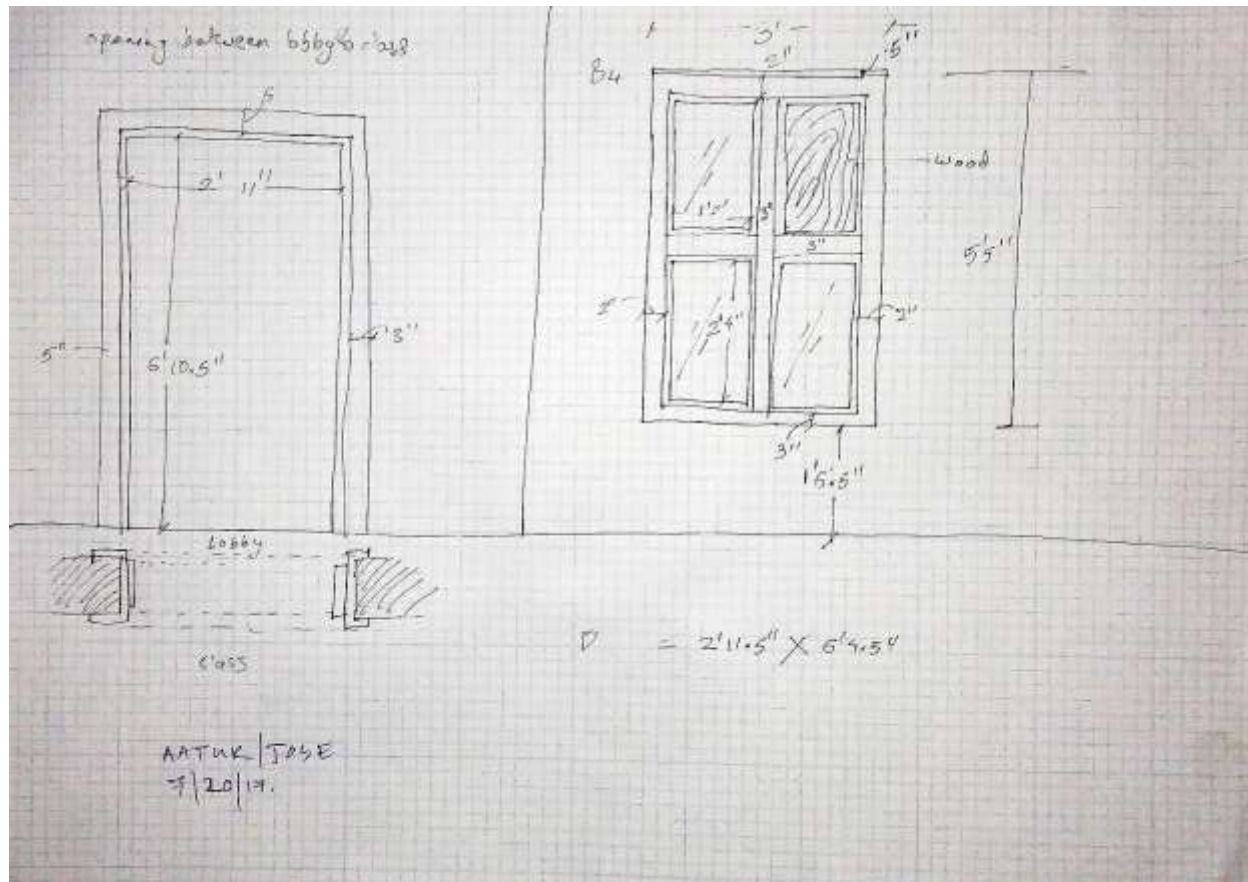 opening between lobby & class
5
2' 11"
5"
6'10.5"
3"
lobby
class
AATUR|JOSE
7|20|17.
3'
.5"
2"
wood
3"
3"
5'5"
2"
2'4"
2"
3"
1'5.5"
D = 2'11.5" X 6'4.5"